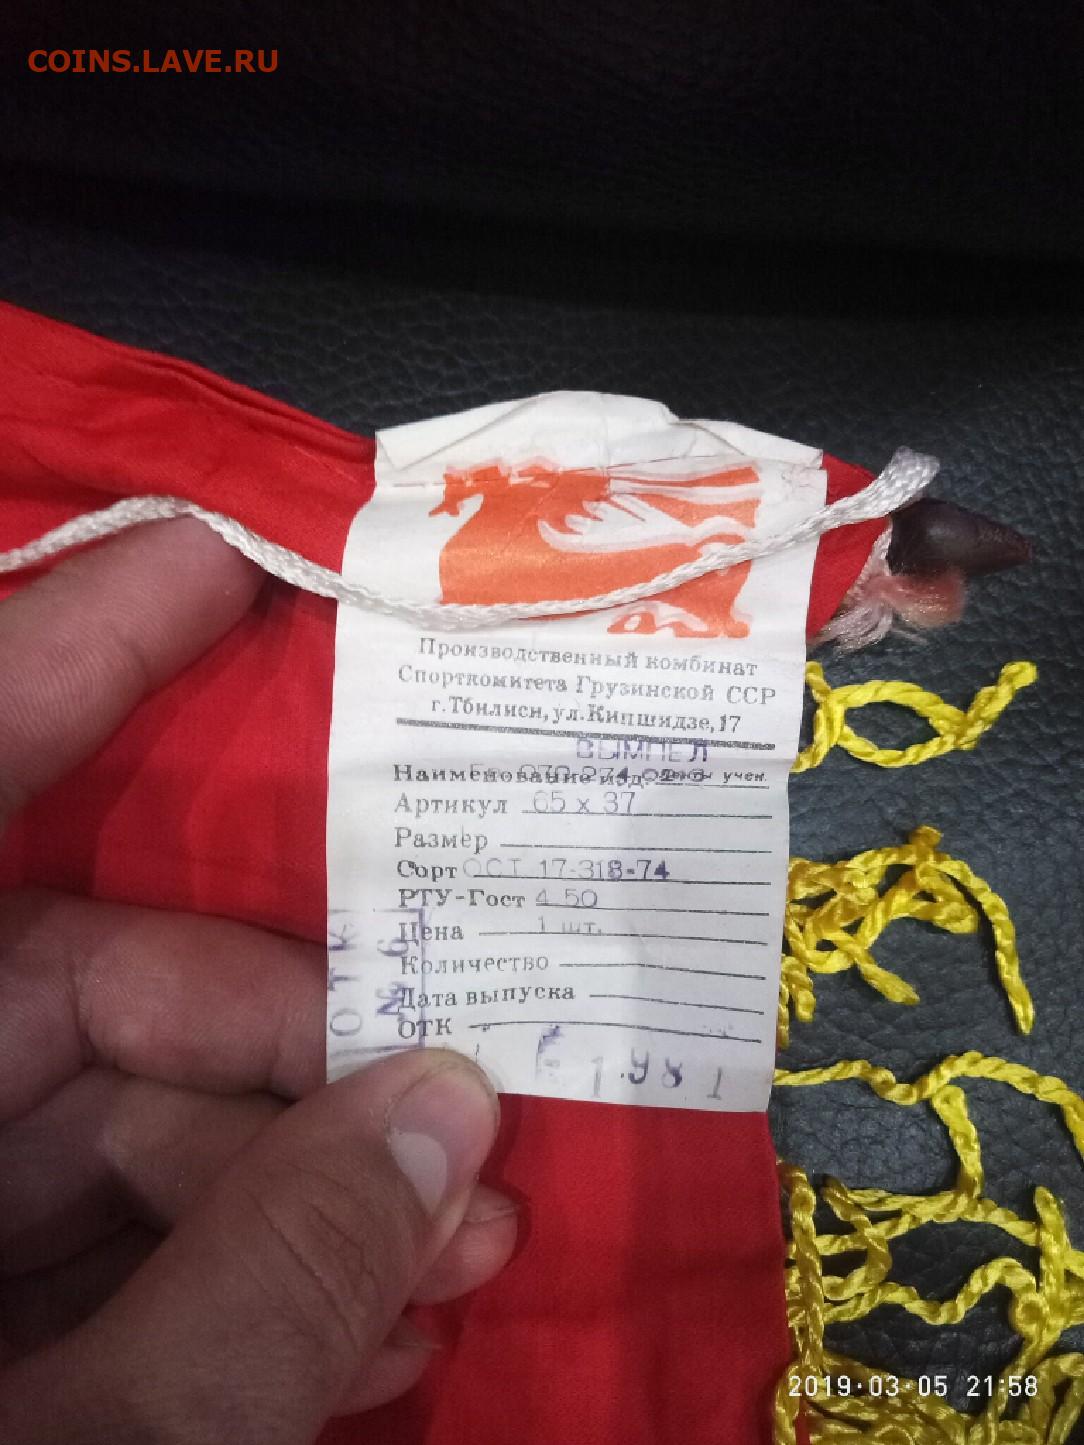 COINS.LAVE.RU
Производственный комбинат
Спорткомитета Грузинской ССР
г.Тбилиси, ул.Кипшидзе, 17
ВЫМПЕЛ
Наименование изд. учен.
Артикул 65 х 37
Размер
Сорт ОСТ 17-318-74
РТУ-Гост 4.50
Цена 1 шт.
Количество
Дата выпуска
ОТК
ОТК
№ 6
1981
2019·03·05 21:58